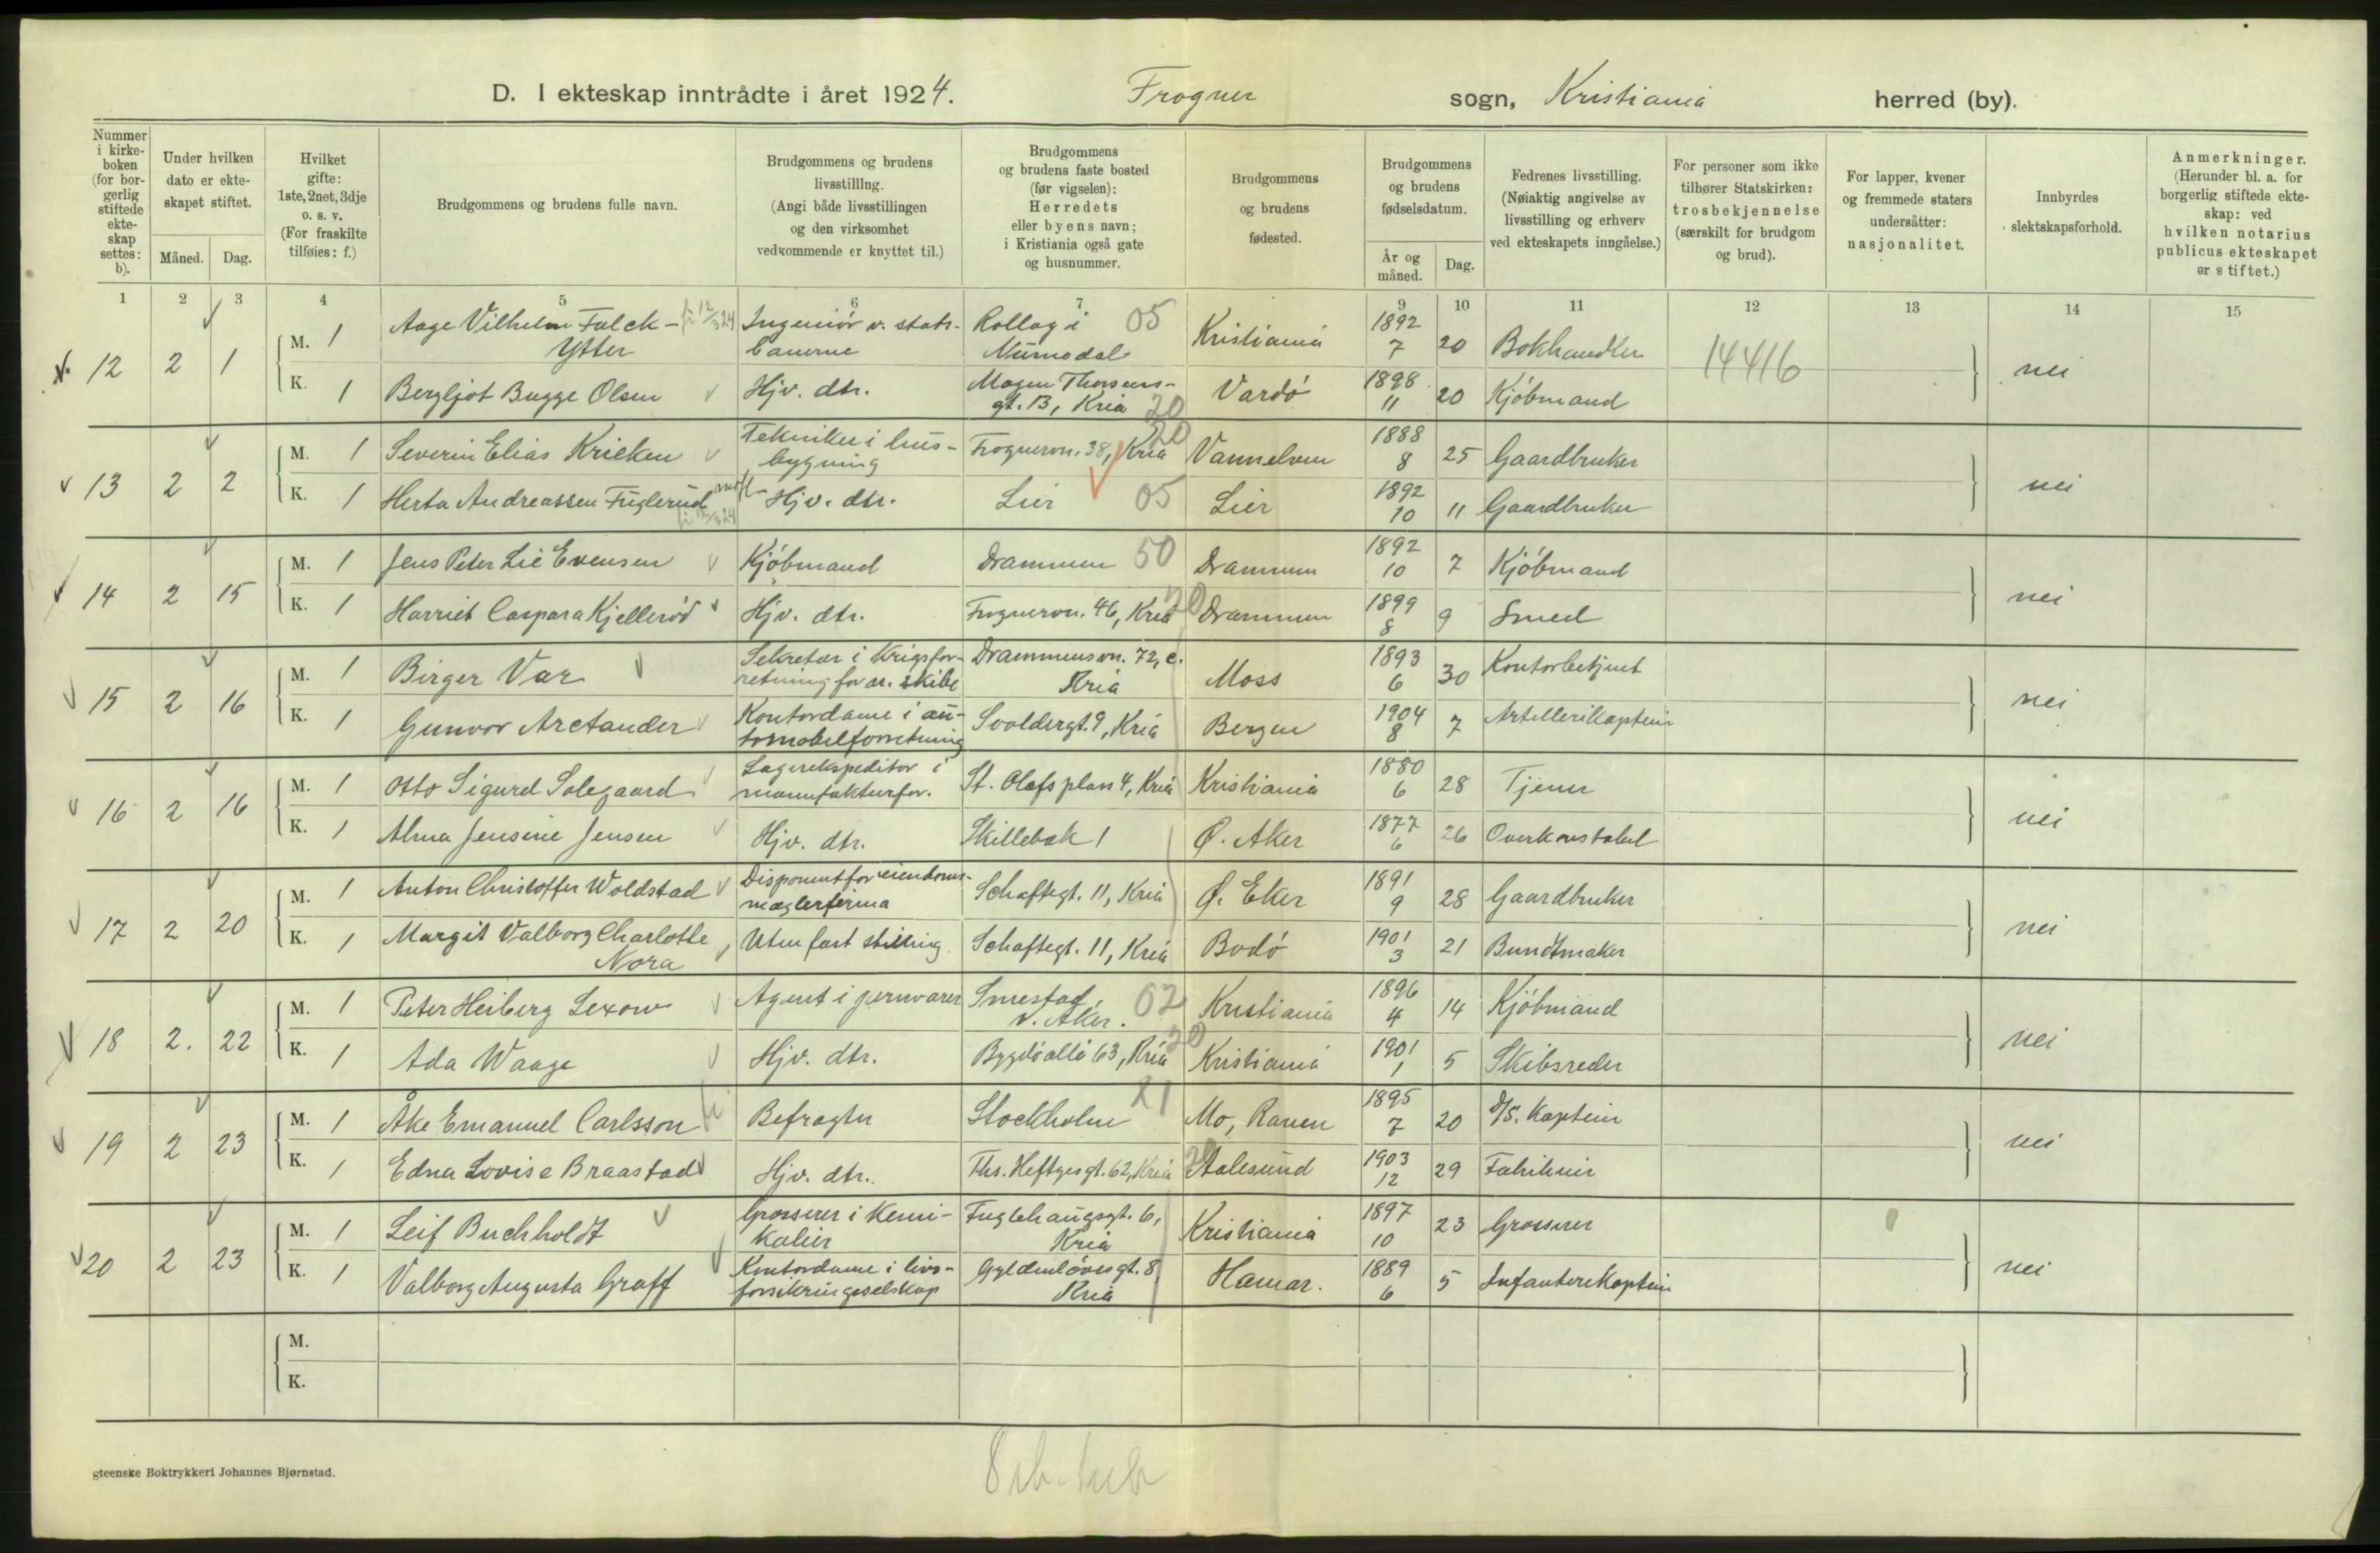 D. I ekteskap inntrådte i året 1924. Frogner sogn, Kristiania herred (by).
Nummer i kirkeboken (for borgerlig stiftede ekteskap settes: b).
Under hvilken dato er ekteskapet stiftet.
Måned. Dag.
Hvilket gifte: 1ste, 2net, 3dje o. s. v. (For fraskilte tilføies: f.)
Brudgommens og brudens fulle navn.
Brudgommens og brudens livsstilllng. (Angi både livsstillingen og den virksomhet vedkommende er knyttet til.)
Brudgommens og brudens faste bosted (før vigselen): Herredets eller byens navn; i Kristiania også gate og husnummer.
Brudgommens og brudens fødested.
Brudgommens og brudens fødselsdatum.
År og måned. Dag.
Fedrenes livsstilling. (Nøiaktig angivelse av livsstilling og erhverv ved ekteskapets inngåelse.)
For personer som ikke tilhører Statskirken: trosbekjennelse (særskilt for brudgom og brud).
For lapper, kvener og fremmede staters undersåtter: nasjonalitet.
Innbyrdes slektskapsforhold.
Anmerkninger. (Herunder bl. a. for borgerlig stiftede ekteskap: ved hvilken notarius publicus ekteskapet er stiftet.)
1 2 3 4 5 6 7 9 10 11 12 13 14 15
12 2 1 M. 1 Aage Vilhelm Falck-Ytter Ingeniör v. statsbanerne Rollag i Numedal 05 Kristiania 1892 7 20 Bokhandler 14416 nei
K. 1 Bergljot Bugge Olsen Hjv. dtr. Magen Thorsensgt. 13, Kria 20 Vardö 1898 11 20 Kjöbmand
13 2 2 M. 1 Severin Elias Kricken Tekniker i husbygning Frognervn. 38, Kria 20 Vannelven 1888 8 25 Gaardbruker nei
K. 1 Herta Andreassen Fuglerud Hjv. dtr. Lier 05 Lier 1892 10 11 Gaardbruker
14 2 15 M. 1 Jens Peter Lie Evensen Kjöbmand Drammen 50 Drammen 1892 10 7 Kjöbmand nei
K. 1 Harriet Caspara Kjelleröd Hjv. dtr. Frognervn. 46, Kria 20 Drammen 1899 8 9 Smed
15 2 16 M. 1 Birger Var Sekretær i Krigsforretning for ar. skibe Drammensvn. 72, c. Kria Moss 1893 6 30 Kontorbetjent nei
K. 1 Gunvor Arctander Kontordame i automobilforretning Svoldergt. 9, Kria Bergen 1904 8 7 Artillerikaptein
16 2 16 M. 1 Otto Sigurd Solegaard Lagerekspeditor i manufakturfor. St. Olafs plass 4, Kria Kristiania 1880 6 28 Tjener nei
K. 1 Alma Jensine Jensen Hjv. dtr. Skillebæk 1 Ø. Aker 1877 6 26 Overkonstabel
17 2 20 M. 1 Anton Christoffer Woldstad Disponent for eiendomsmæglerfirma Schaftegt. 11, Kria Ø. Eker 1891 9 28 Gaardbruker nei
K. 1 Margit Valborg Charlotte Nora Uten fast stilling Schaftegt. 11, Kria Bodö 1901 3 21 Bundtmaker
18 2. 22 M. 1 Peter Heiberg Lexow Agent i jernvarer Smestad v. Aker. 02 Kristiania 1896 4 14 Kjöbmand nei
K. 1 Ada Waage Hjv. dtr. Bygdö allé 63, Kria 20 Kristiania 1901 1 5 Skibsreder
19 2 23 M. 1 Åke Emanuel Carlsson Befragter Stockholm 21 Mo, Ranen 1895 7 20 D/S. Kaptein nei
K. 1 Edna Lovise Braastad Hjv. dtr. Ths. Heftyesgt. 62, Kria 20 Aalesund 1903 12 29 Fabrikeier
20 2 23 M. 1 Leif Buchholdt Grosserer i Kemikalier Fuglehaugsgt. 6, Kria Kristiania 1897 10 23 Grosserer nei
K. 1 Valborg Augusta Graff Kontordame i livsforsikringsselskap Gyldenlövesgt. 8 Kria Hamar. 1889 6 5 Infanterikaptein
M.
K.
gteenske Boktrykkeri Johannes Bjørnstad.